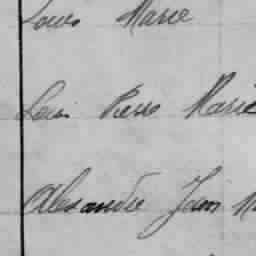 Louis Marie
Louis Pierre Marie
Alexandre Jean M